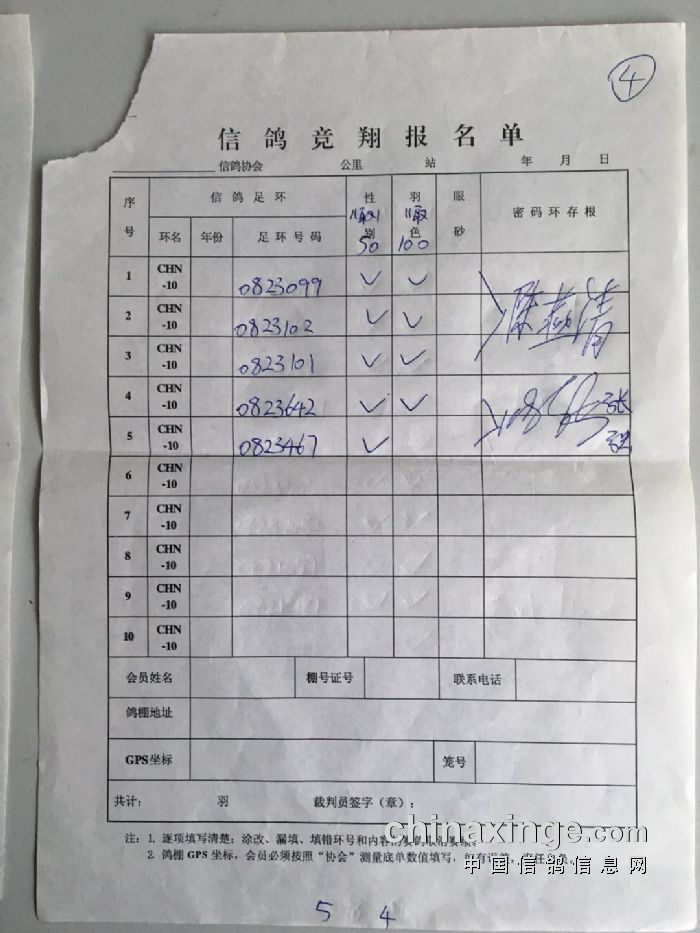 ④
信鸽竞翔报名单
信鸽协会 公里 站 年 月 日
序号 信鸽足环 性别 羽色 眼砂 密码环存根
环名 年份 足环号码
50 100
1 CHN-10 0823099 ✓ ✓
2 CHN-10 0823102 ✓ ✓
3 CHN-10 0823101 ✓ ✓
4 CHN-10 0823642 ✓ ✓
5 CHN-10 0823467 ✓
6 CHN-10
7 CHN-10
8 CHN-10
9 CHN-10
10 CHN-10
会员姓名 棚号证号 联系电话
鸽棚地址
GPS坐标 笼号
共计: 羽 裁判员签字(章):
注: 1. 逐项填写清楚; 涂改、漏填、填错环号和内容
2. 鸽棚 GPS 坐标, 会员必须按照“协会”测量底单数值填写,
chinaxinge.com
中国信鸽信息网
5 4